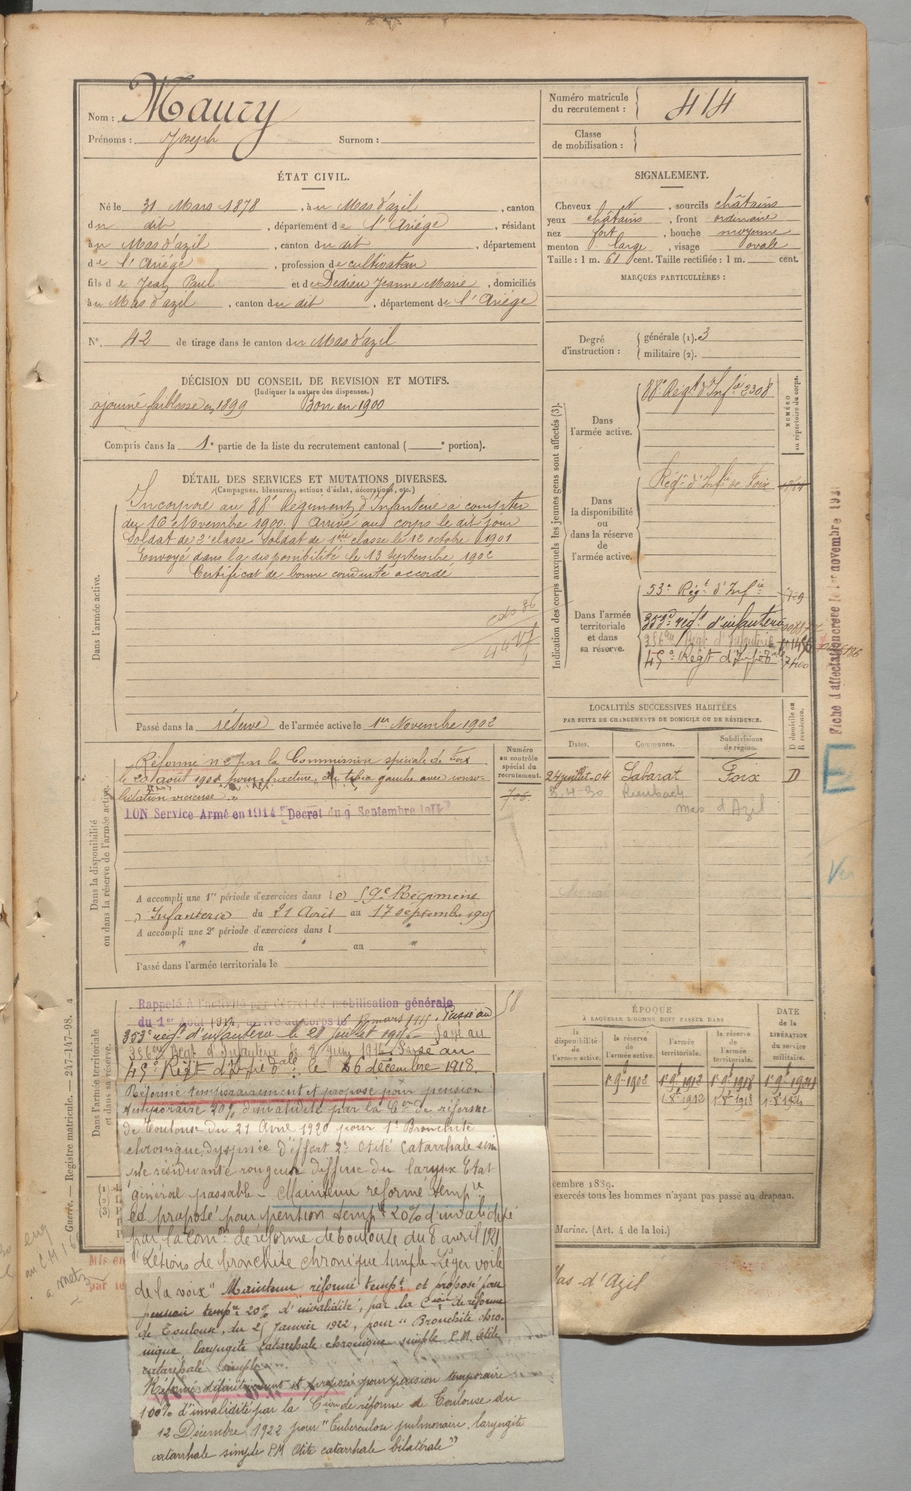 Nom : Maury
Prénoms : Joseph Surnom :
Numéro matricule du recrutement : 414
Classe de mobilisation :
ÉTAT CIVIL.
Né le 31 Mars 1878, au Mas d'azil, canton
du dit, département de l'Ariège, résidant
au Mas d'azil, canton du dit, département
de l'Ariège, profession de cultivateur
fils de Jean Paul et de Dedieu Jeanne Marie, domiciliés
au Mas d'azil, canton du dit, département de l'Ariège
N° 42 de tirage dans le canton du Mas d'azil
SIGNALEMENT.
Cheveux N, sourcils châtains
yeux châtains, front ordinaire
nez fort, bouche moyenne
menton large, visage ovale
Taille : 1 m. 61 cent. Taille rectifiée : 1 m. cent.
MARQUES PARTICULIÈRES :
Degré d'instruction : générale (1). 3
militaire (2).
DÉCISION DU CONSEIL DE REVISION ET MOTIFS.
(Indiquer la nature des dispenses.)
ajourné faiblesse en 1899 Bon en 1900
Compris dans la 1e partie de la liste du recrutement cantonal ( e portion).
DÉTAIL DES SERVICES ET MUTATIONS DIVERSES.
(Campagnes, blessures, actions d'éclat, décorations, etc.)
Dans l'armée active.
Incorporé au 88e Régiment d'Infanterie à compter
du 16 Novembre 1900. Arrivé au corps le dit jour
Soldat de 2e classe Soldat de 1ère classe le 12 octobre 1901
Envoyé dans la disponibilité le 13 Septembre 1902
Certificat de bonne conduite accordé
Passé dans la réserve de l'armée active le 1er Novembre 1902
Indication des corps auxquels les jeunes gens sont affectés (3).
NUMÉRO au répertoire du corps.
Dans l'armée active. 88e Régt d'Infie 3308
Dans la disponibilité ou dans la réserve de l'armée active. Régt d'Infie de Foix
Dans l'armée territoriale et dans sa réserve. 53e Régt d'Infie
353e régt d'infanterie
356e Régt d'Infanterie
49e Régt d'Infie
Fiche d'affectation créée le 1er novembre 19
LOCALITÉS SUCCESSIVES HABITÉES
PAR SUITE DE CHANGEMENTS DE DOMICILE OU DE RÉSIDENCE.
Dates. Communes. Subdivisions de région. D domicile ou R résidence.
24 juillet 04 Sabarat Foix D
Mas d'Azil
Dans la disponibilité ou dans la réserve de l'armée active.
Numéro au contrôle spécial du recrutement.
Réformé n° 2 par la Commission spéciale de Foix
le août pour fracture du tibia gauche avec conso-
lidation vicieuse
BON Service Armé en 1914 Decret du 9 Septembre 1914
A accompli une 1re période d'exercices dans le 59e Régiment
d'Infanterie du 21 Avril au 17 septembre 1905
A accompli une 2e période d'exercices dans l
du au
Passé dans l'armée territoriale le
Dans l'armée territoriale et dans sa réserve.
Rappelé à l'activité par décret de mobilisation générale
du 1er Août 1914, arrivé au corps le mars 1915. Passé au
353e régt d'infanterie le 20 juillet 1915. Passé au
356e Régt d'Infanterie le Juin 1916 Passé au
49e Régt d'Infie le 26 décembre 1918.
58
ÉPOQUE
À LAQUELLE L'HOMME DOIT PASSER DANS
DATE DE LA LIBÉRATION du service militaire.
la disponibilité de l'armée active. la réserve de l'armée active. l'armée territoriale. la réserve de l'armée territoriale.
1er 9 1902 1er 9 1912 1er 9 1918 1er 9 1924
Réformé temporairement et proposé pour pension
temporaire 20% d'invalidité par la Con de réforme
de Toulouse du 21 Avril 1920 pour 1° Bronchite
chronique, dyspnée d'effort 2° Otite Catarrhale sim-
ple récidivante rougeur diffuse du larynx Etat
général passable - Maintenu réformé tempre
et proposé pour pension tempre 20% d'invalidité
par la Comon de réforme de Toulouse du 8 avril 1921
"Lésions de bronchite chronique simple - Léger voile
de la voix" Maintenu réformé tempt et proposé pour
pension tempre 20% d'invalidité, par la Con de réforme
de Toulouse, du 25 Janvier 1922, pour "Bronchite chro-
nique laryngite catarrhale chronique simple P.M. otite
catarrhale simple".
Réformé définitivement et proposé pour pension temporaire
100% d'invalidité par la Con de réforme de Toulouse du
12 Décembre 1922 pour "Tuberculose pulmonaire, laryngite
catarrhale simple P.M. Otite catarrhale bilatérale"
cembre 1889.
exercés tous les hommes n'ayant pas passé au drapeau.
Marine. (Art. 4 de la loi.)
Mas-d'Azil
Guerre. — Registre matricule. — 247-147-98.